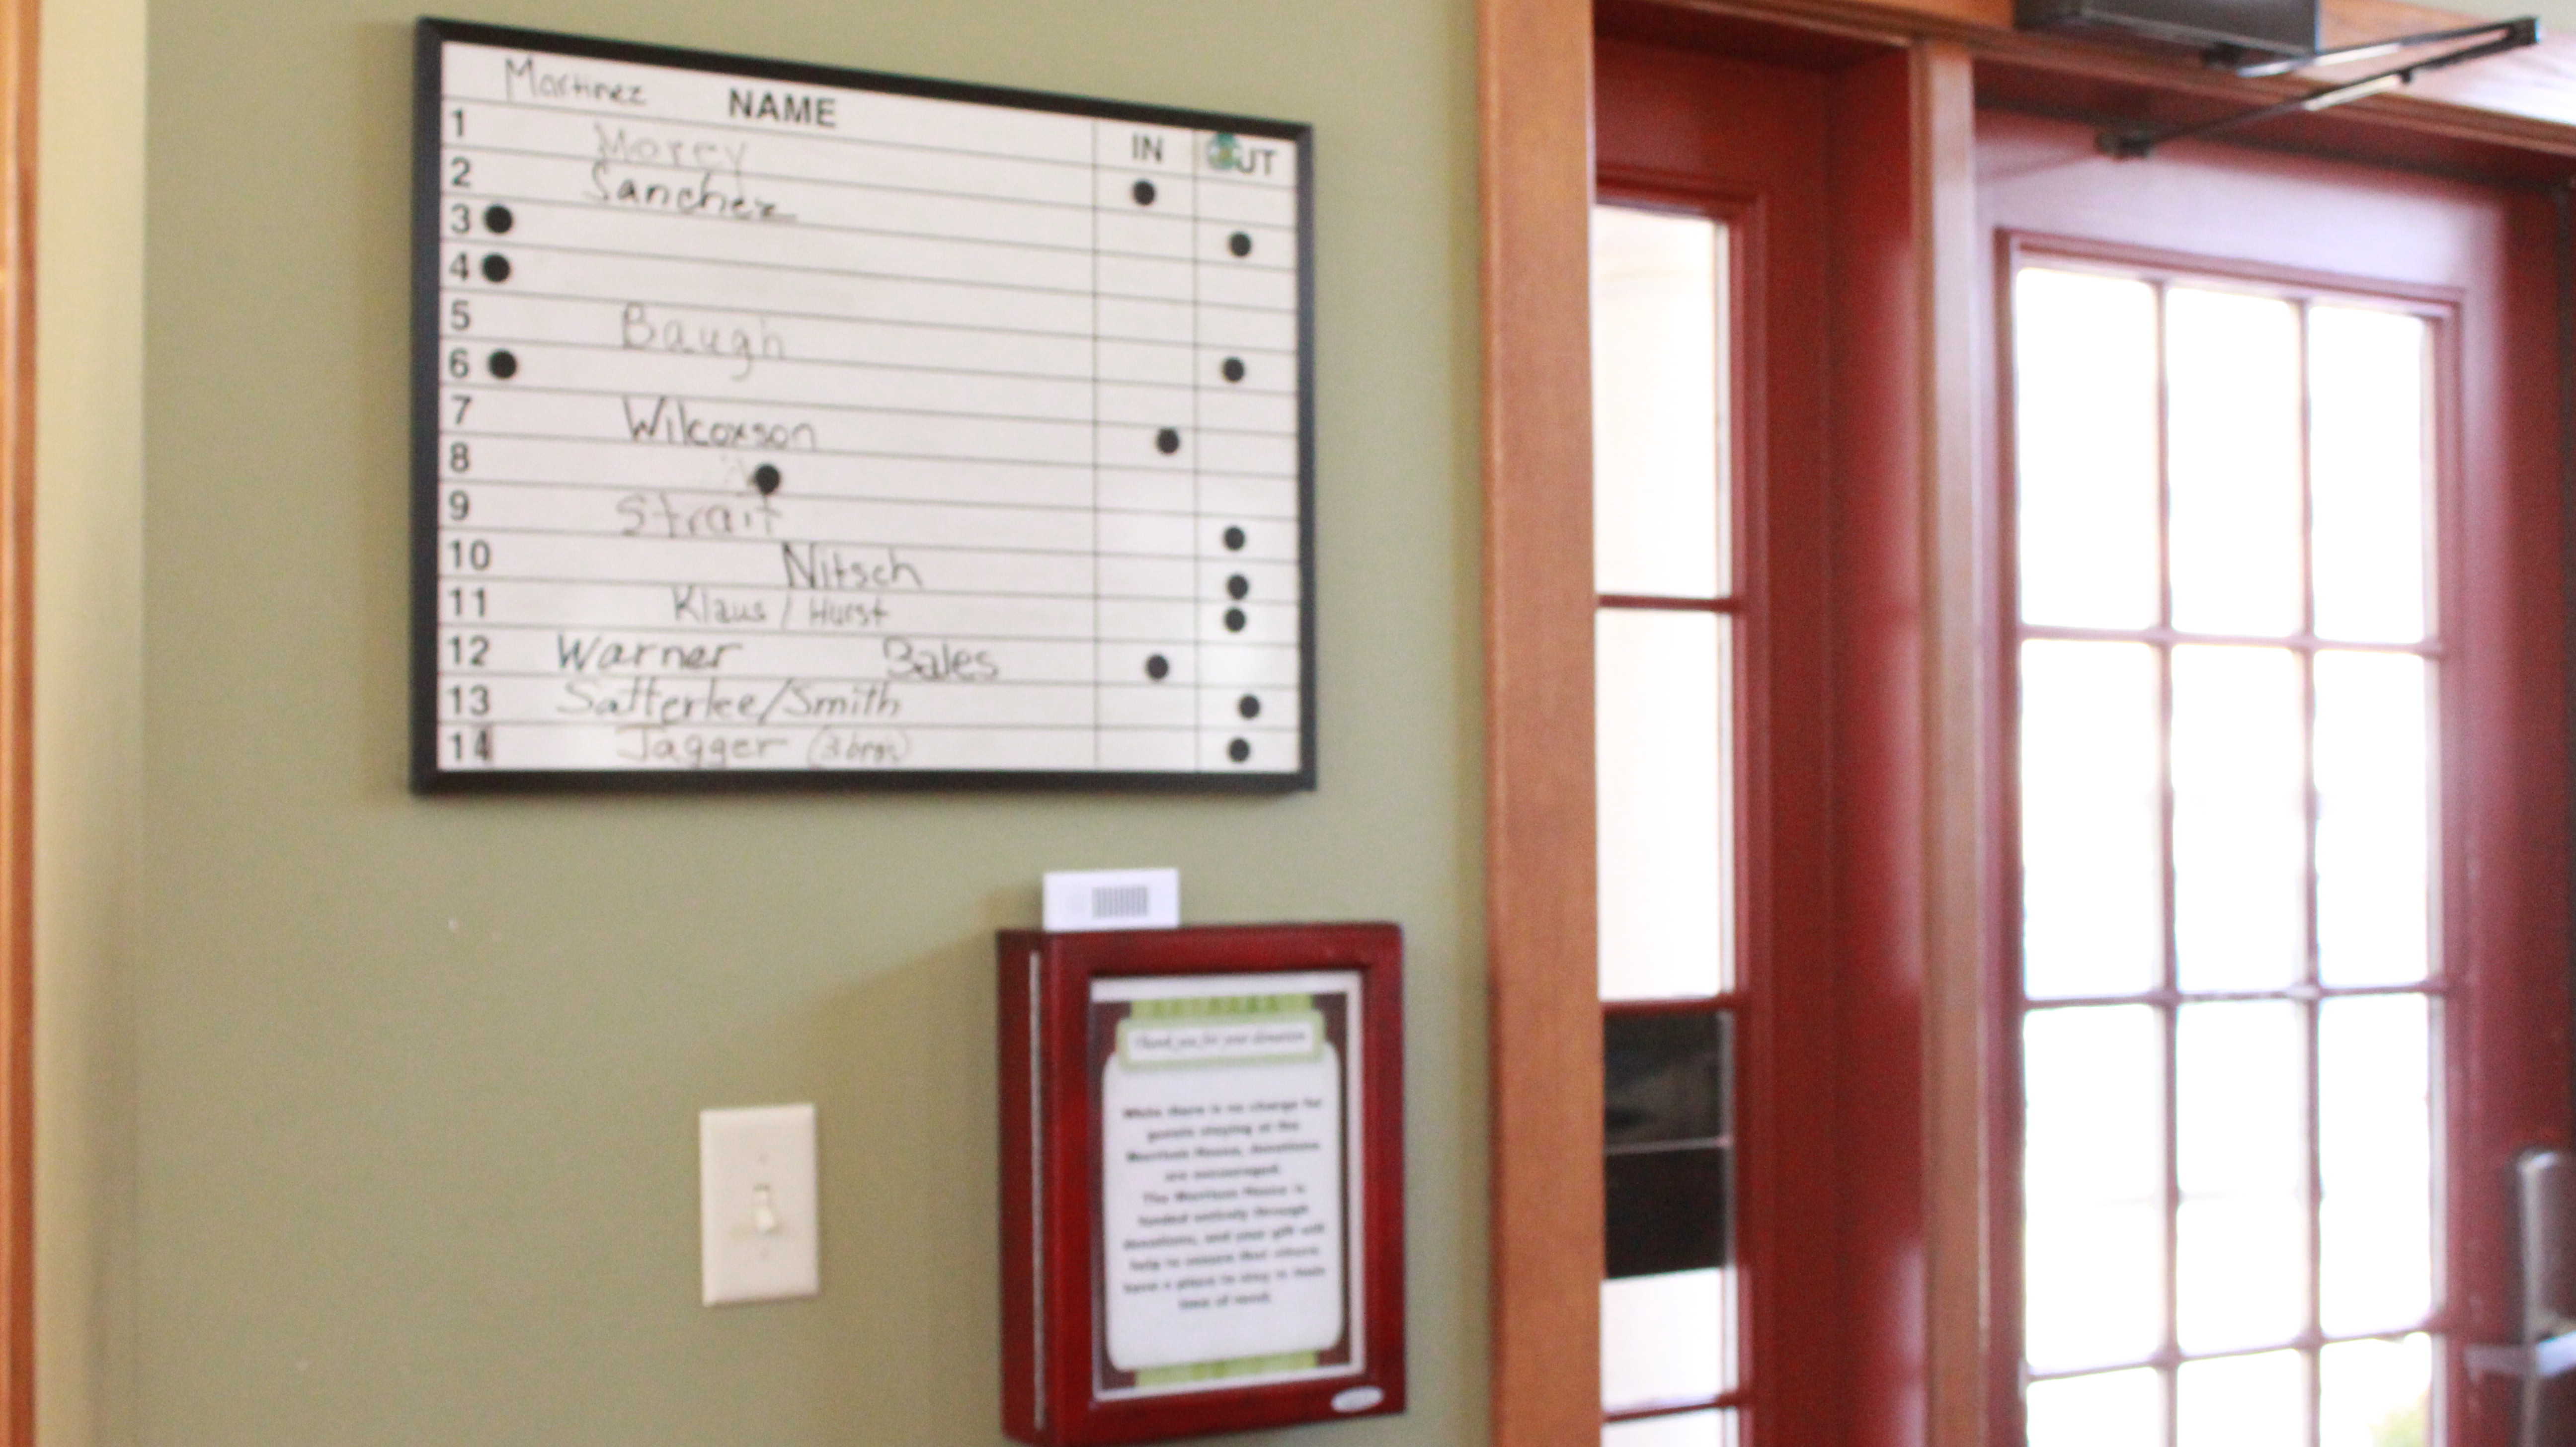 Martinez NAME IN OUT
1 Morey
2 Sanchez
3
4
5 Baugh
6
7 Wilcoxson
8
9 Strait
10 Nitsch
11 Klaus / Hurst
12 Warner Bales
13 Satterlee/Smith
14 Jagger
Thank you for your donation
While there is no charge for
guests staying at the
Morrison House, donations
are encouraged.
The Morrison House is
funded entirely through
donations, and your gift will
help to ensure that others
have a place to stay in their
time of need.